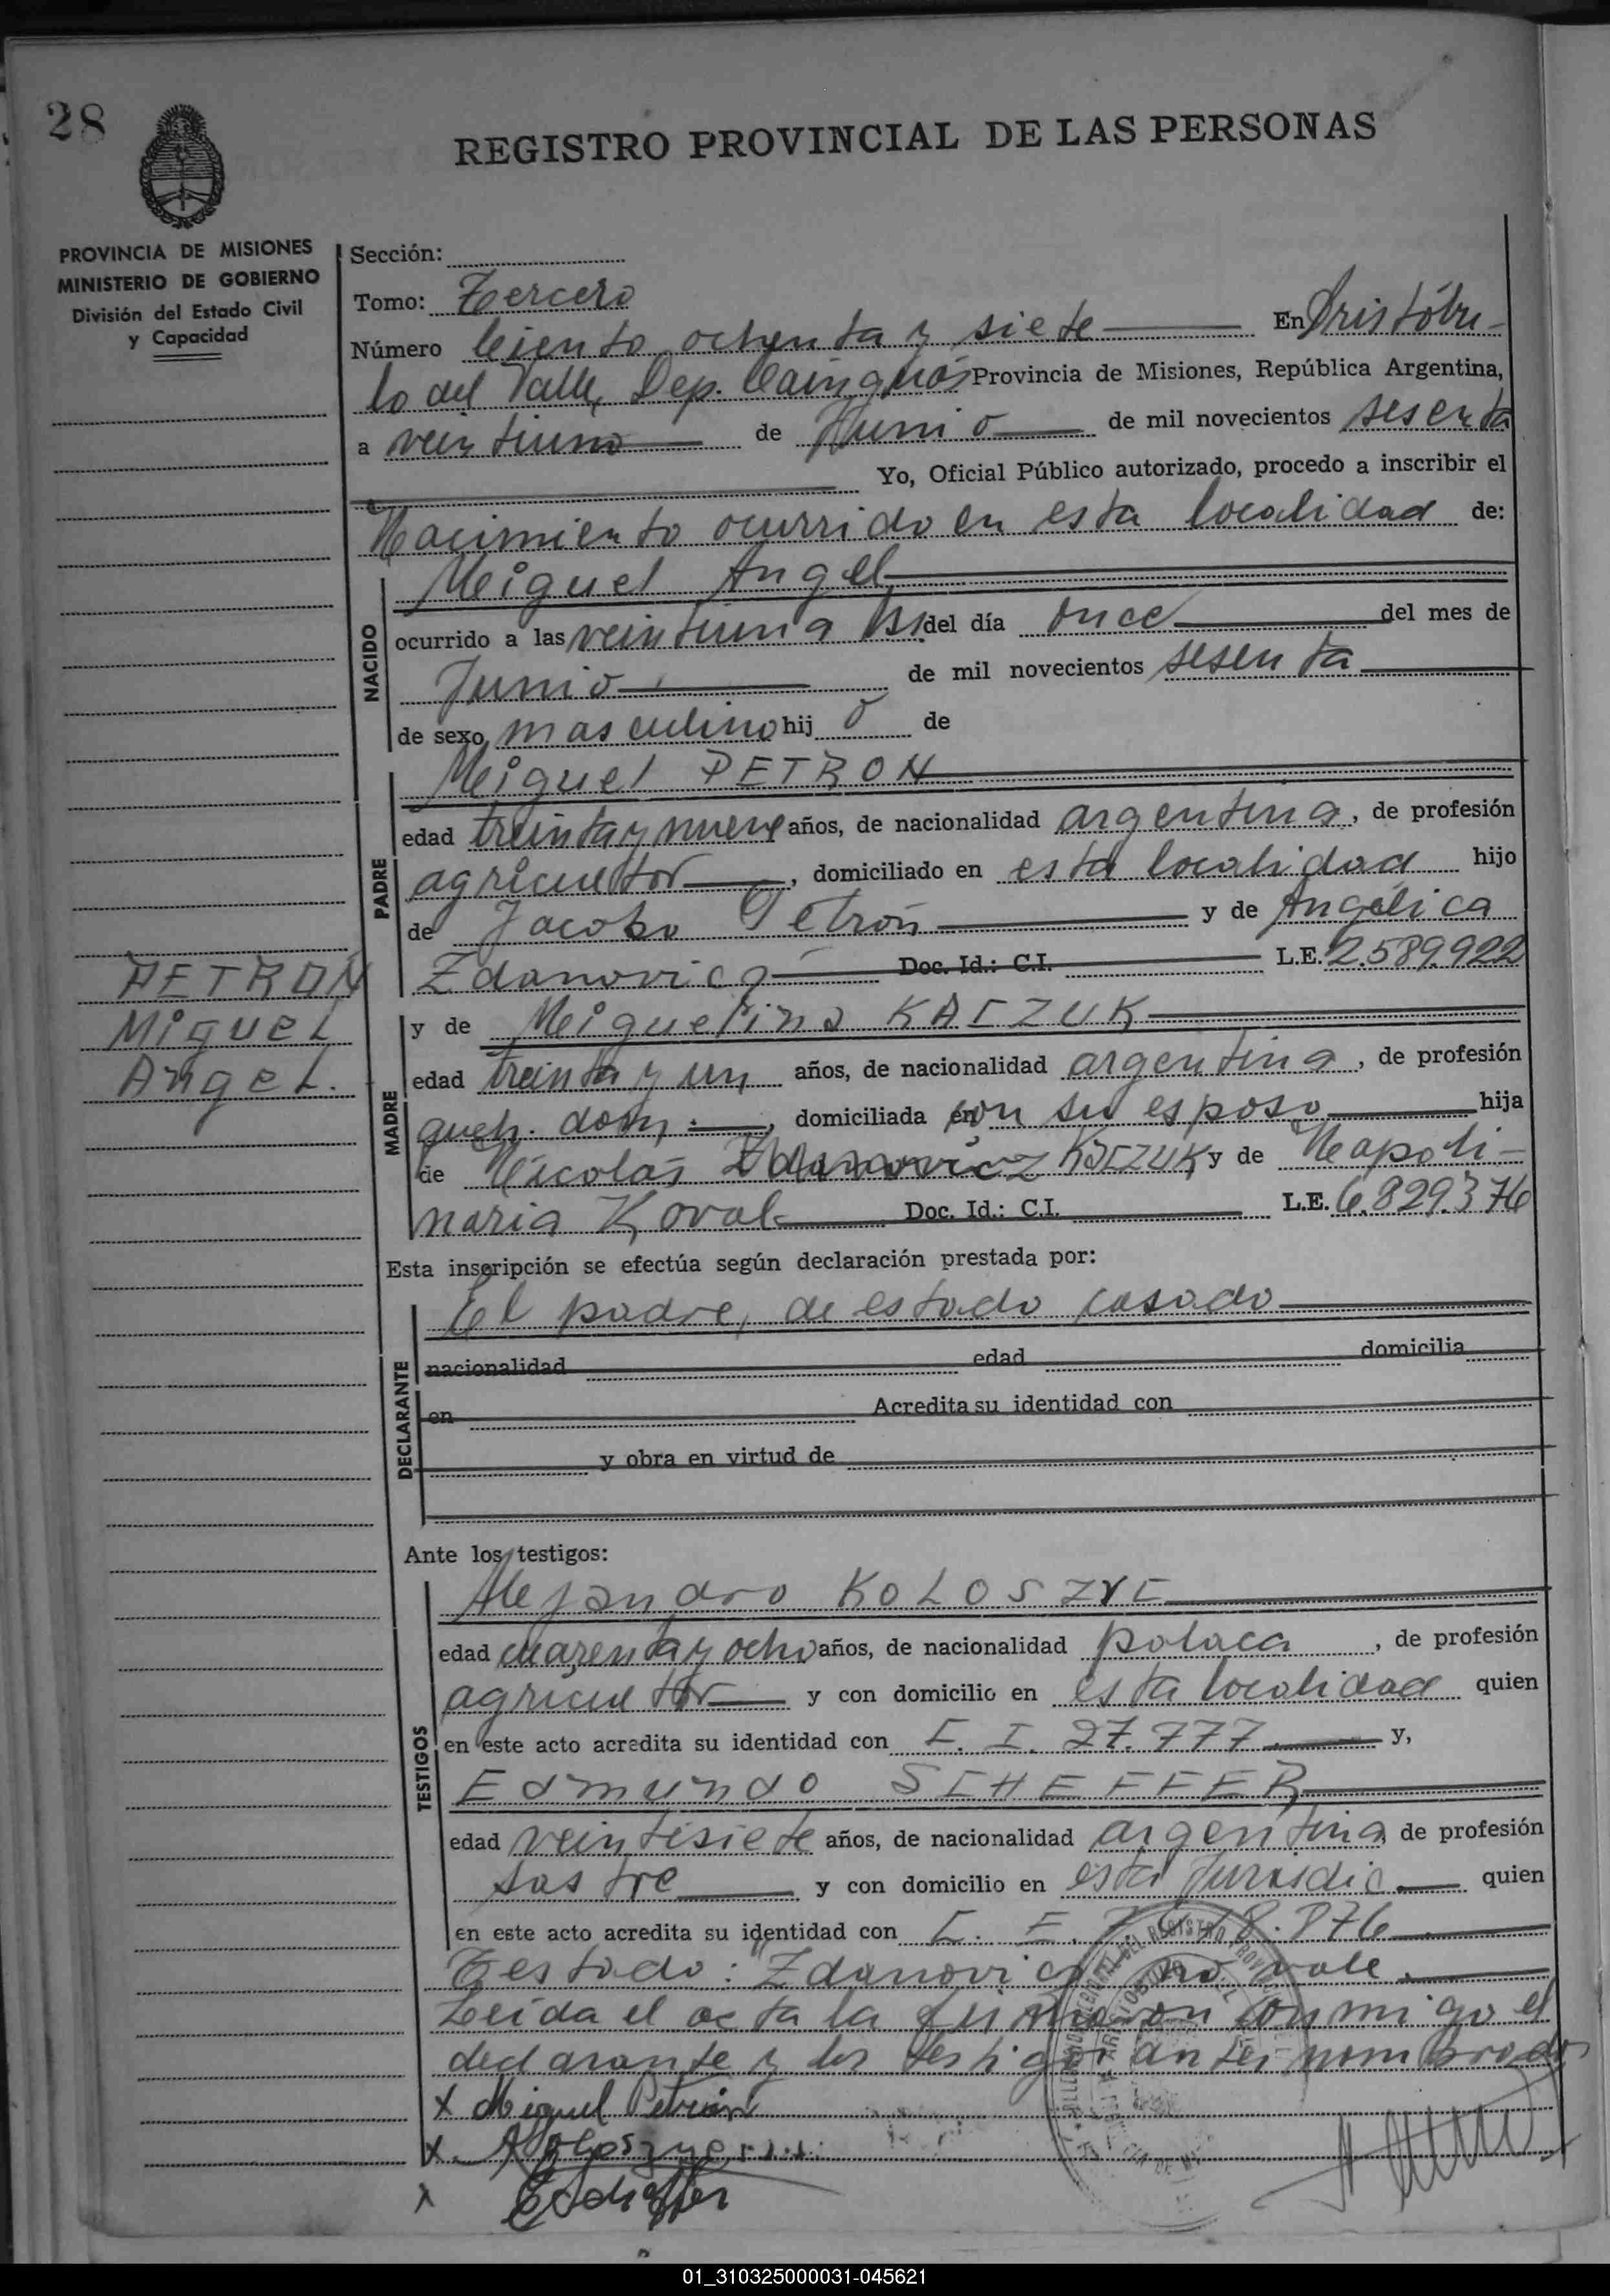 28
REGISTRO PROVINCIAL DE LAS PERSONAS
PROVINCIA DE MISIONES
MINISTERIO DE GOBIERNO
División del Estado Civil
y Capacidad
Sección:
Tomo: Tercero
Número Ciento ochenta y siete En Aristóbu-
lo del Valle, Dep. Cainguás Provincia de Misiones, República Argentina,
a veintiuno de Junio de mil novecientos sesenta
Yo, Oficial Público autorizado, procedo a inscribir el
Nacimiento ocurrido en esta localidad de:
NACIDO
Miguel Angel
ocurrido a las veintiuna hs. del día once del mes de
Junio de mil novecientos sesenta
de sexo masculino hij o de
PADRE
Miguel PETRON
edad treinta y nueve años, de nacionalidad argentina, de profesión
agricultor, domiciliado en esta localidad hijo
de Jacobo Petrón y de Angélica
Zdanovicz Doc. Id.: C.I. L.E. 2.589.922
PETRON
Miguel
Angel.
MADRE
y de Miguelina KACZUK
edad treinta y un años, de nacionalidad argentina, de profesión
queh. dom., domiciliada en con su esposo hija
de Nicolás Zdanovicz KACZUK y de Neapoli-
naria Koval Doc. Id.: C.I. L.E. 6.829.376
Esta inscripción se efectúa según declaración prestada por:
DECLARANTE
El padre, de estado casado
nacionalidad edad domicilia
en Acredita su identidad con
y obra en virtud de
Ante los testigos:
TESTIGOS
Alejandro KOLOSZYC
edad cuarenta y ocho años, de nacionalidad polaca, de profesión
agricultor y con domicilio en esta localidad quien
en este acto acredita su identidad con C. I. 27.777 y,
Edmundo SCHEFFER
edad veintisiete años, de nacionalidad argentina de profesión
sastre y con domicilio en esta Jurisdic. quien
en este acto acredita su identidad con L. E. 8.876
Testado: "Zdanovicz" no vale.
Leída el acta la firmaron conmigo el
declarante y los testigos antes nombrados
x Miguel Petrón
x
x
01_310325000031-045621